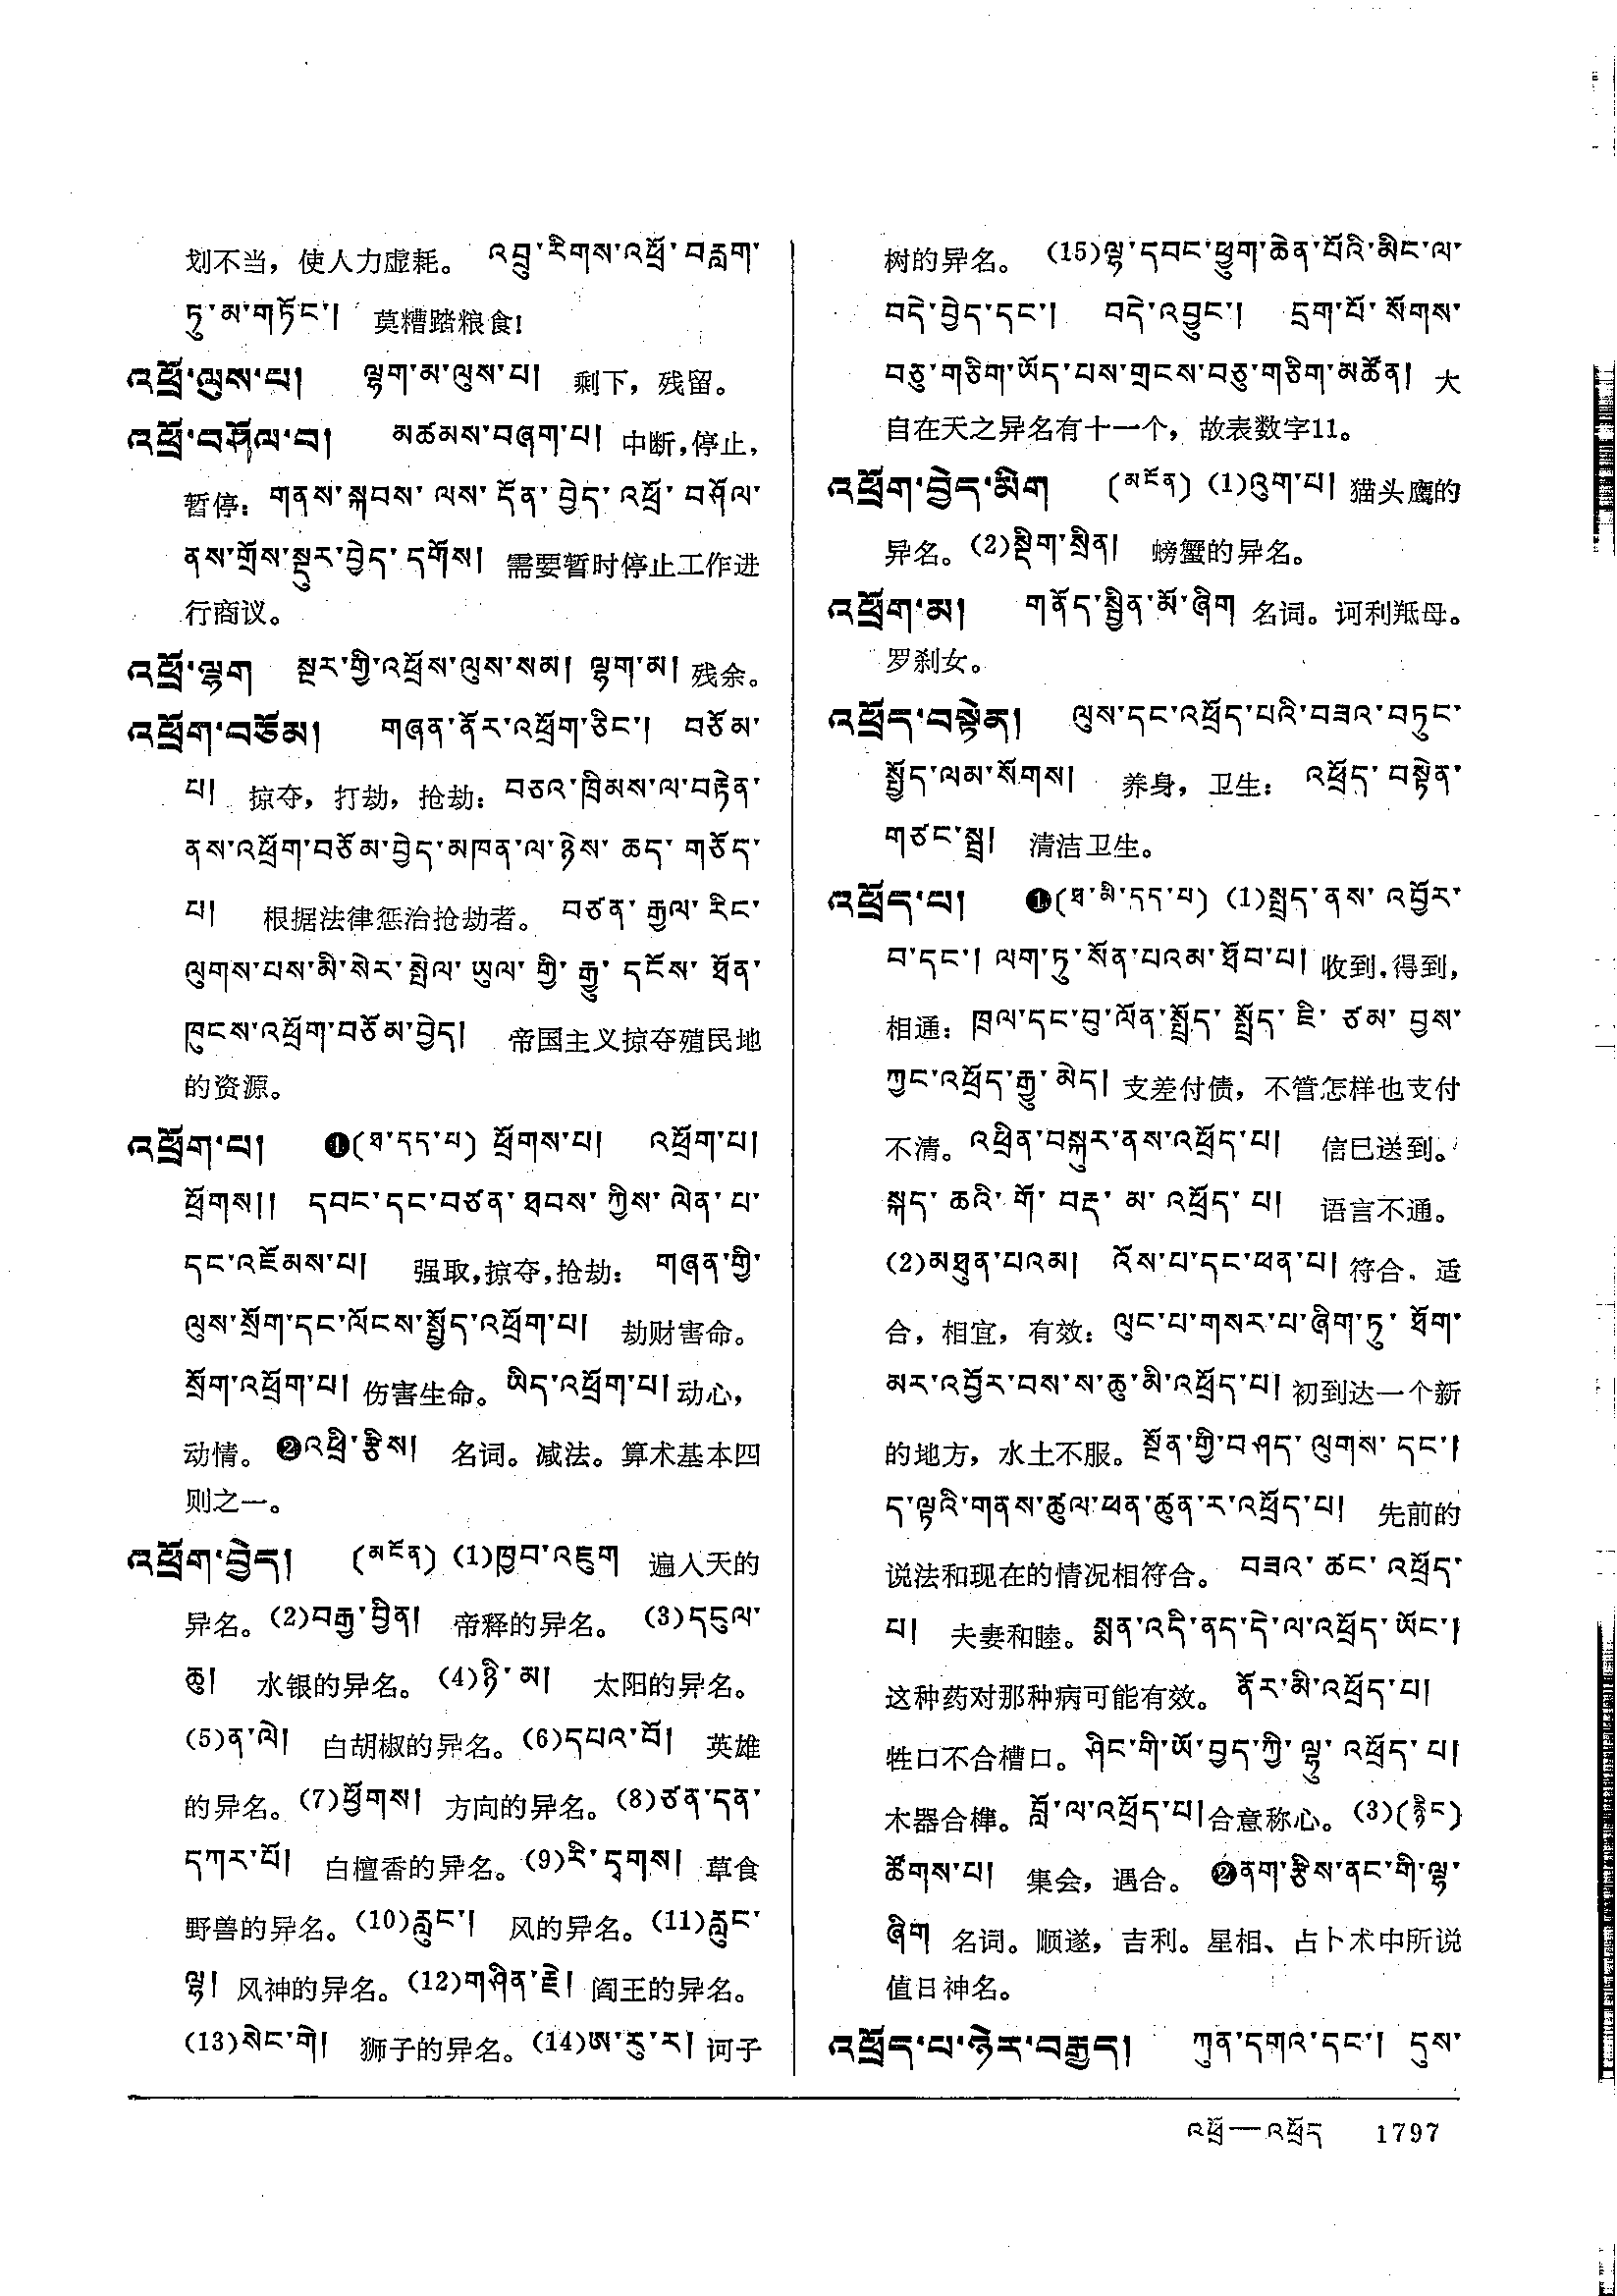 划不当，使人力虚耗。 འབྲུ་རིགས་འཕྲོ་བརླག་
ཏུ་མ་གཏོང་། 莫糟踏粮食!
འཕྲོ་ལུས་པ། ལྷག་མ་ལུས་པ། 剩下，残留。
འཕྲོ་བཤོལ་བ། མཚམས་བཞག་པ། 中断,停止,
暂停：གནས་སྐབས་ ལས་ དོན་ བྱེད་ འཕྲོ་ བཤོལ་
ནས་གྲོས་སྡུར་བྱེད་ དགོས། 需要暂时停止工作进
行商议。
འཕྲོ་ལྷག སྔར་གྱི་འཕྲོས་ལུས་སམ། ལྷག་མ། 残余。
འཕྲོག་བཅོམ། གཞན་ནོར་འཕྲོག་ཅིང་། བཅོམ་
པ། 掠夺，打劫，抢劫：བཅའ་ཁྲིམས་ལ་བརྟེན་
ནས་འཕྲོག་བཅོམ་བྱེད་མཁན་ལ་ཉེས་ ཆད་ གཅོད་
པ། 根据法律惩治抢劫者。 བཙན་ རྒྱལ་ རིང་
ལུགས་པས་མི་སེར་སྤེལ་ ཡུལ་ གྱི་ རྒྱུ་ དངོས་ ཐོན་
ཁུངས་འཕྲོག་བཅོམ་བྱེད། 帝国主义掠夺殖民地
的资源。
འཕྲོག་པ། ❶(ཐ་དད་པ) ཕྲོགས་པ། འཕྲོག་པ།
ཕྲོགས།། དབང་དང་བཙན་ ཐབས་ ཀྱིས་ ལེན་ པ་
དང་འཇོམས་པ། 强取,掠夺,抢劫： གཞན་གྱི་
ལུས་སྲོག་དང་ལོངས་སྤྱོད་འཕྲོག་པ། 劫财害命。
སྲོག་འཕྲོག་པ། 伤害生命。ཡིད་འཕྲོག་པ། 动心，
动情。❷འཕྲི་རྩིས། 名词。减法。算术基本四
则之一。
འཕྲོག་བྱེད། (མངོན) (1)ཁྱབ་འཇུག 遍入天的
异名。(2)བརྒྱ་བྱིན། 帝释的异名。 (3)དངུལ་
ཆུ། 水银的异名。(4)ཉི་མ། 太阳的异名。
(5)ན་ལེ། 白胡椒的异名。(6)དཔའ་བོ། 英雄
的异名。(7)ཕྱོགས། 方向的异名。(8)ཙན་དན་
དཀར་པོ། 白檀香的异名。(9)རི་དྭགས། 草食
野兽的异名。(10)རླུང་། 风的异名。(11)རླུང་
ལྷ། 风神的异名。(12)གཤིན་རྗེ། 阎王的异名。
(13)སེང་གེ། 狮子的异名。(14)ཨ་རུ་ར། 诃子
树的异名。 (15)ལྷ་དབང་ཕྱུག་ཆེན་པོའི་མིང་ལ་
བདེ་བྱེད་དང་། བདེ་འབྱུང་། དྲག་པོ་ སོགས་
བཅུ་གཅིག་ཡོད་པས་གྲངས་བཅུ་གཅིག་མཚོན། 大
自在天之异名有十一个，故表数字11。
འཕྲོག་བྱེད་མིག (མངོན) (1)འུག་པ། 猫头鹰的
异名。(2)སྡིག་སྲིན། 螃蟹的异名。
འཕྲོག་མ། གནོད་སྦྱིན་མོ་ཞིག 名词。诃利羝母。
罗刹女。
འཕྲོད་བསྟེན། ལུས་དང་འཕྲོད་པའི་བཟའ་བཏུང་
སྤྱོད་ལམ་སོགས། 养身，卫生： འཕྲོད་ བསྟེན་
གཙང་སྦྲ། 清洁卫生。
འཕྲོད་པ། ❶(ཐ་མི་དད་པ) (1)སྤྲད་ནས་ འབྱོར་
བ་དང་། ལག་ཏུ་སོན་པའམ་ཐོབ་པ། 收到,得到,
相通：ཁྲལ་དང་བུ་ལོན་སྤྲོད་ སྤྲོད་ ཇི་ ཙམ་ བྱས་
ཀྱང་འཕྲོད་རྒྱུ་མེད། 支差付债，不管怎样也支付
不清。འཕྲིན་བསྐུར་ནས་འཕྲོད་པ། 信已送到。
སྐད་ ཆའི་ གོ་ བརྡ་ མ་ འཕྲོད་ པ། 语言不通。
(2)མཐུན་པའམ། འོས་པ་དང་ཕན་པ། 符合，适
合，相宜，有效：ལུང་པ་གསར་པ་ཞིག་ཏུ་ ཐོག་
མར་འབྱོར་བས་ས་ཆུ་མི་འཕྲོད་པ། 初到达一个新
的地方，水土不服。སྔོན་གྱི་བཤད་ ལུགས་ དང་།
ད་ལྟའི་གནས་ཚུལ་ཕན་ཚུན་ར་འཕྲོད་པ། 先前的
说法和现在的情况相符合。 བཟའ་ ཚང་ འཕྲོད་
པ། 夫妻和睦。སྨན་འདི་ནད་དེ་ལ་འཕྲོད་ཡོང་།
这种药对那种病可能有效。 ནོར་མི་འཕྲོད་པ།
牲口不合槽口。ཤིང་གི་ཡོ་བྱད་ཀྱི་ ལྷུ་ འཕྲོད་ པ།
木器合榫。བློ་ལ་འཕྲོད་པ། 合意称心。(3)(རྙིང)
ཚོགས་པ། 集会，遇合。 ❷ནག་རྩིས་ནང་གི་ལྷ་
ཞིག 名词。顺遂，吉利。星相、占卜术中所说
值日神名。
འཕྲོད་པ་ཉེར་བརྒྱད། ཀུན་དགའ་དང་། དུས་
འཕྲོ—འཕྲོད 1797